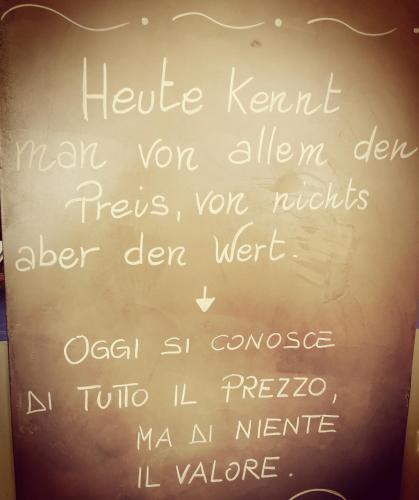 Heute kennt
man von allem den
Preis, von nichts
aber den Wert.
OGGI SI CONOSCE
DI TUTTO IL PREZZO,
MA DI NIENTE
IL VALORE.